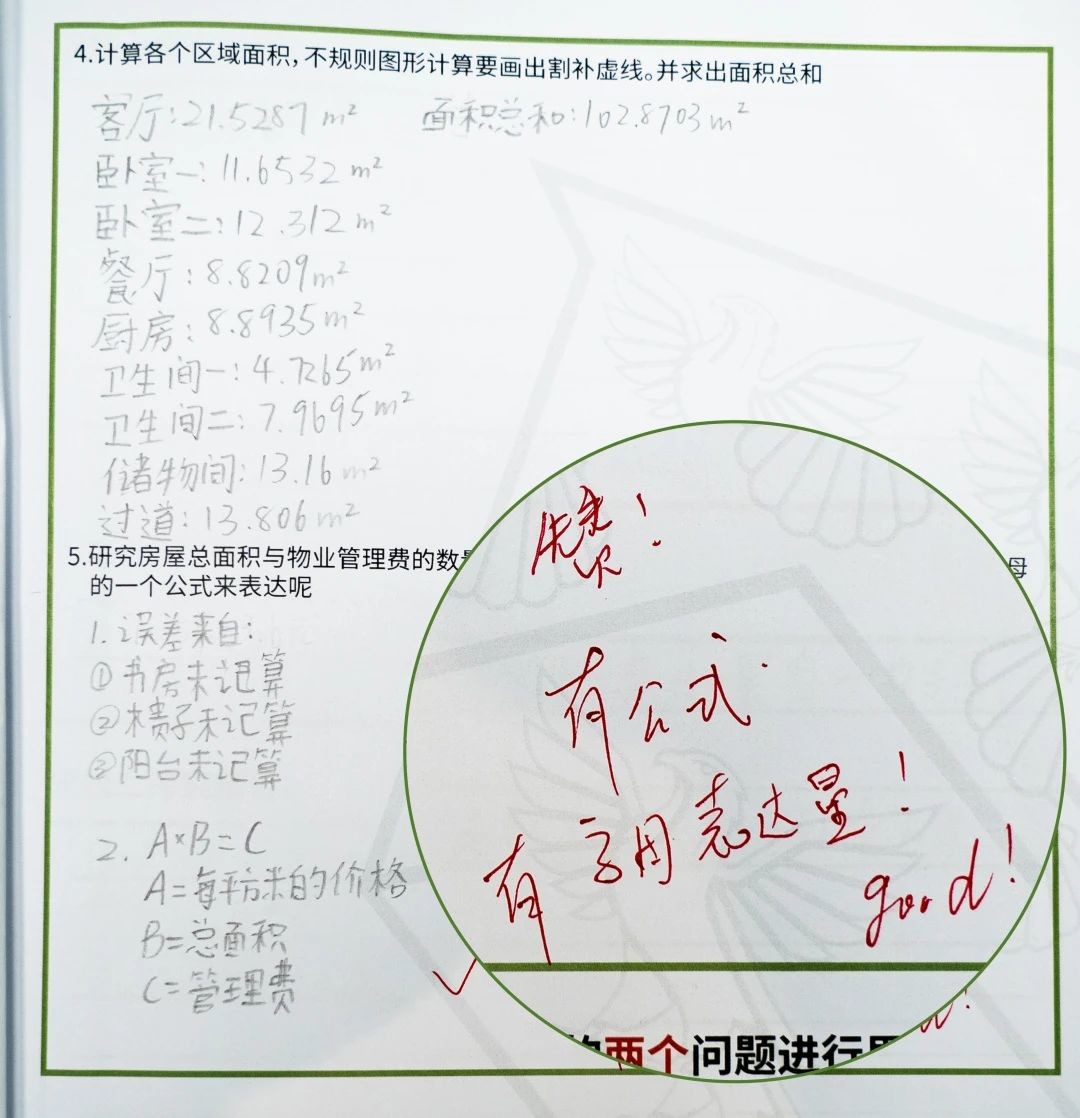 4.计算各个区域面积，不规则图形计算要画出割补虚线。并求出面积总和
客厅:21.5287m² 面积总和:102.8703m²
卧室一:11.6532m²
卧室二:12.312m²
餐厅:8.8209m²
厨房:8.8935m²
卫生间一:4.7265m²
卫生间二:7.9695m²
储物间:13.16m²
过道:13.806m²
5.研究房屋总面积与物业管理费的数 母
的一个公式来表达呢
1.误差来自:
①书房未记算
②柜子未记算
③阳台未记算
2. A×B=C
A=每平方米的价格
B=总面积
C=管理费
赞!
有公式.
有字母表达量!
good!
两个问题进行